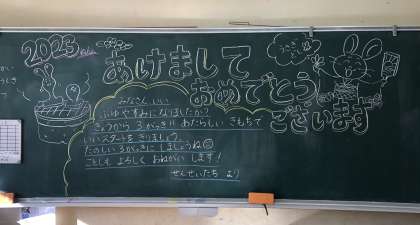 2023ねん
あけまして
おめでとう
ございます
みなさん いい
ふゆやすみに なりましたか?
きょうから 3がっき!! あたらしい きもちで
いいスタートを きりましょう。
たのしい 3がっきに しましょうね
ことしも よろしく おねがい します!
せんせいたち より